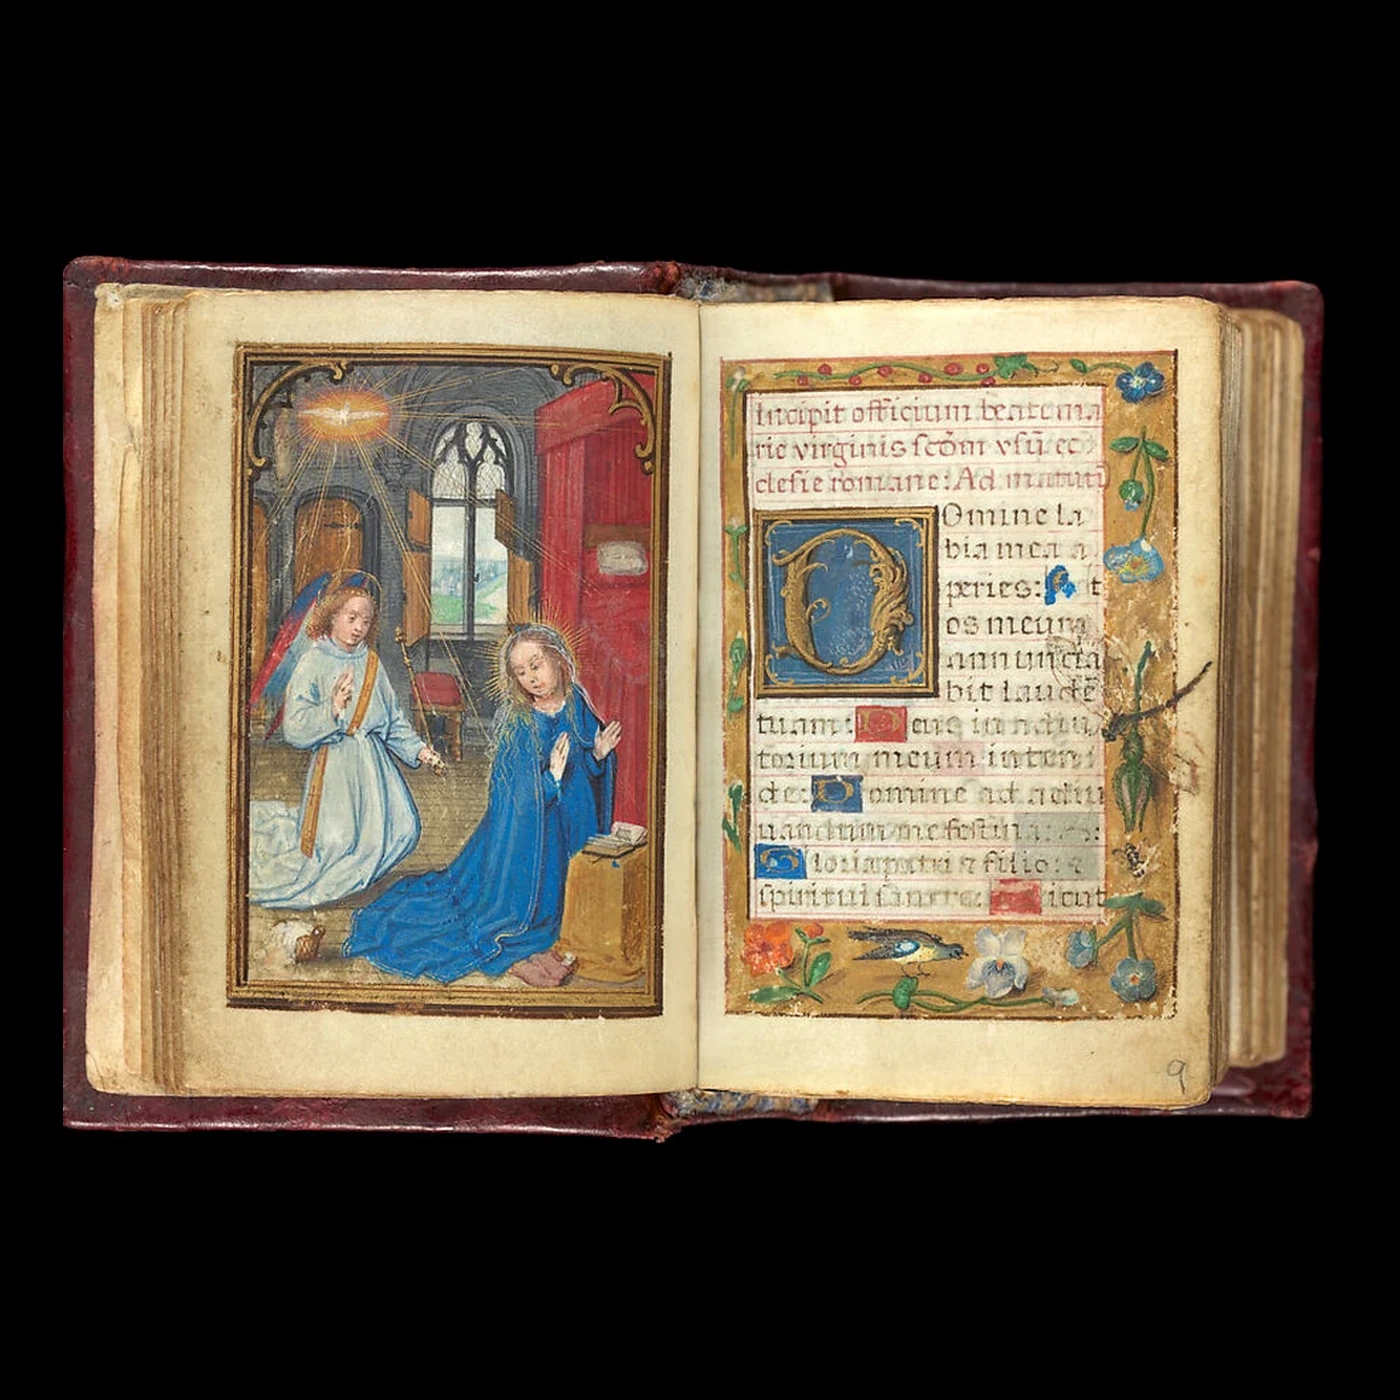 Incipit officium beate ma
rie virginis scōm vsū ec
clesie romane: Ad matuti
Omine la
bia mea a
peries: Et
os meum
annuncia
bit laudē
tuam: Deus in adiu
torium meum inten
de: Domine ad adiu
uandum me festina:
Gloria patri et filio: et
spiritui sancto: Sicut
9